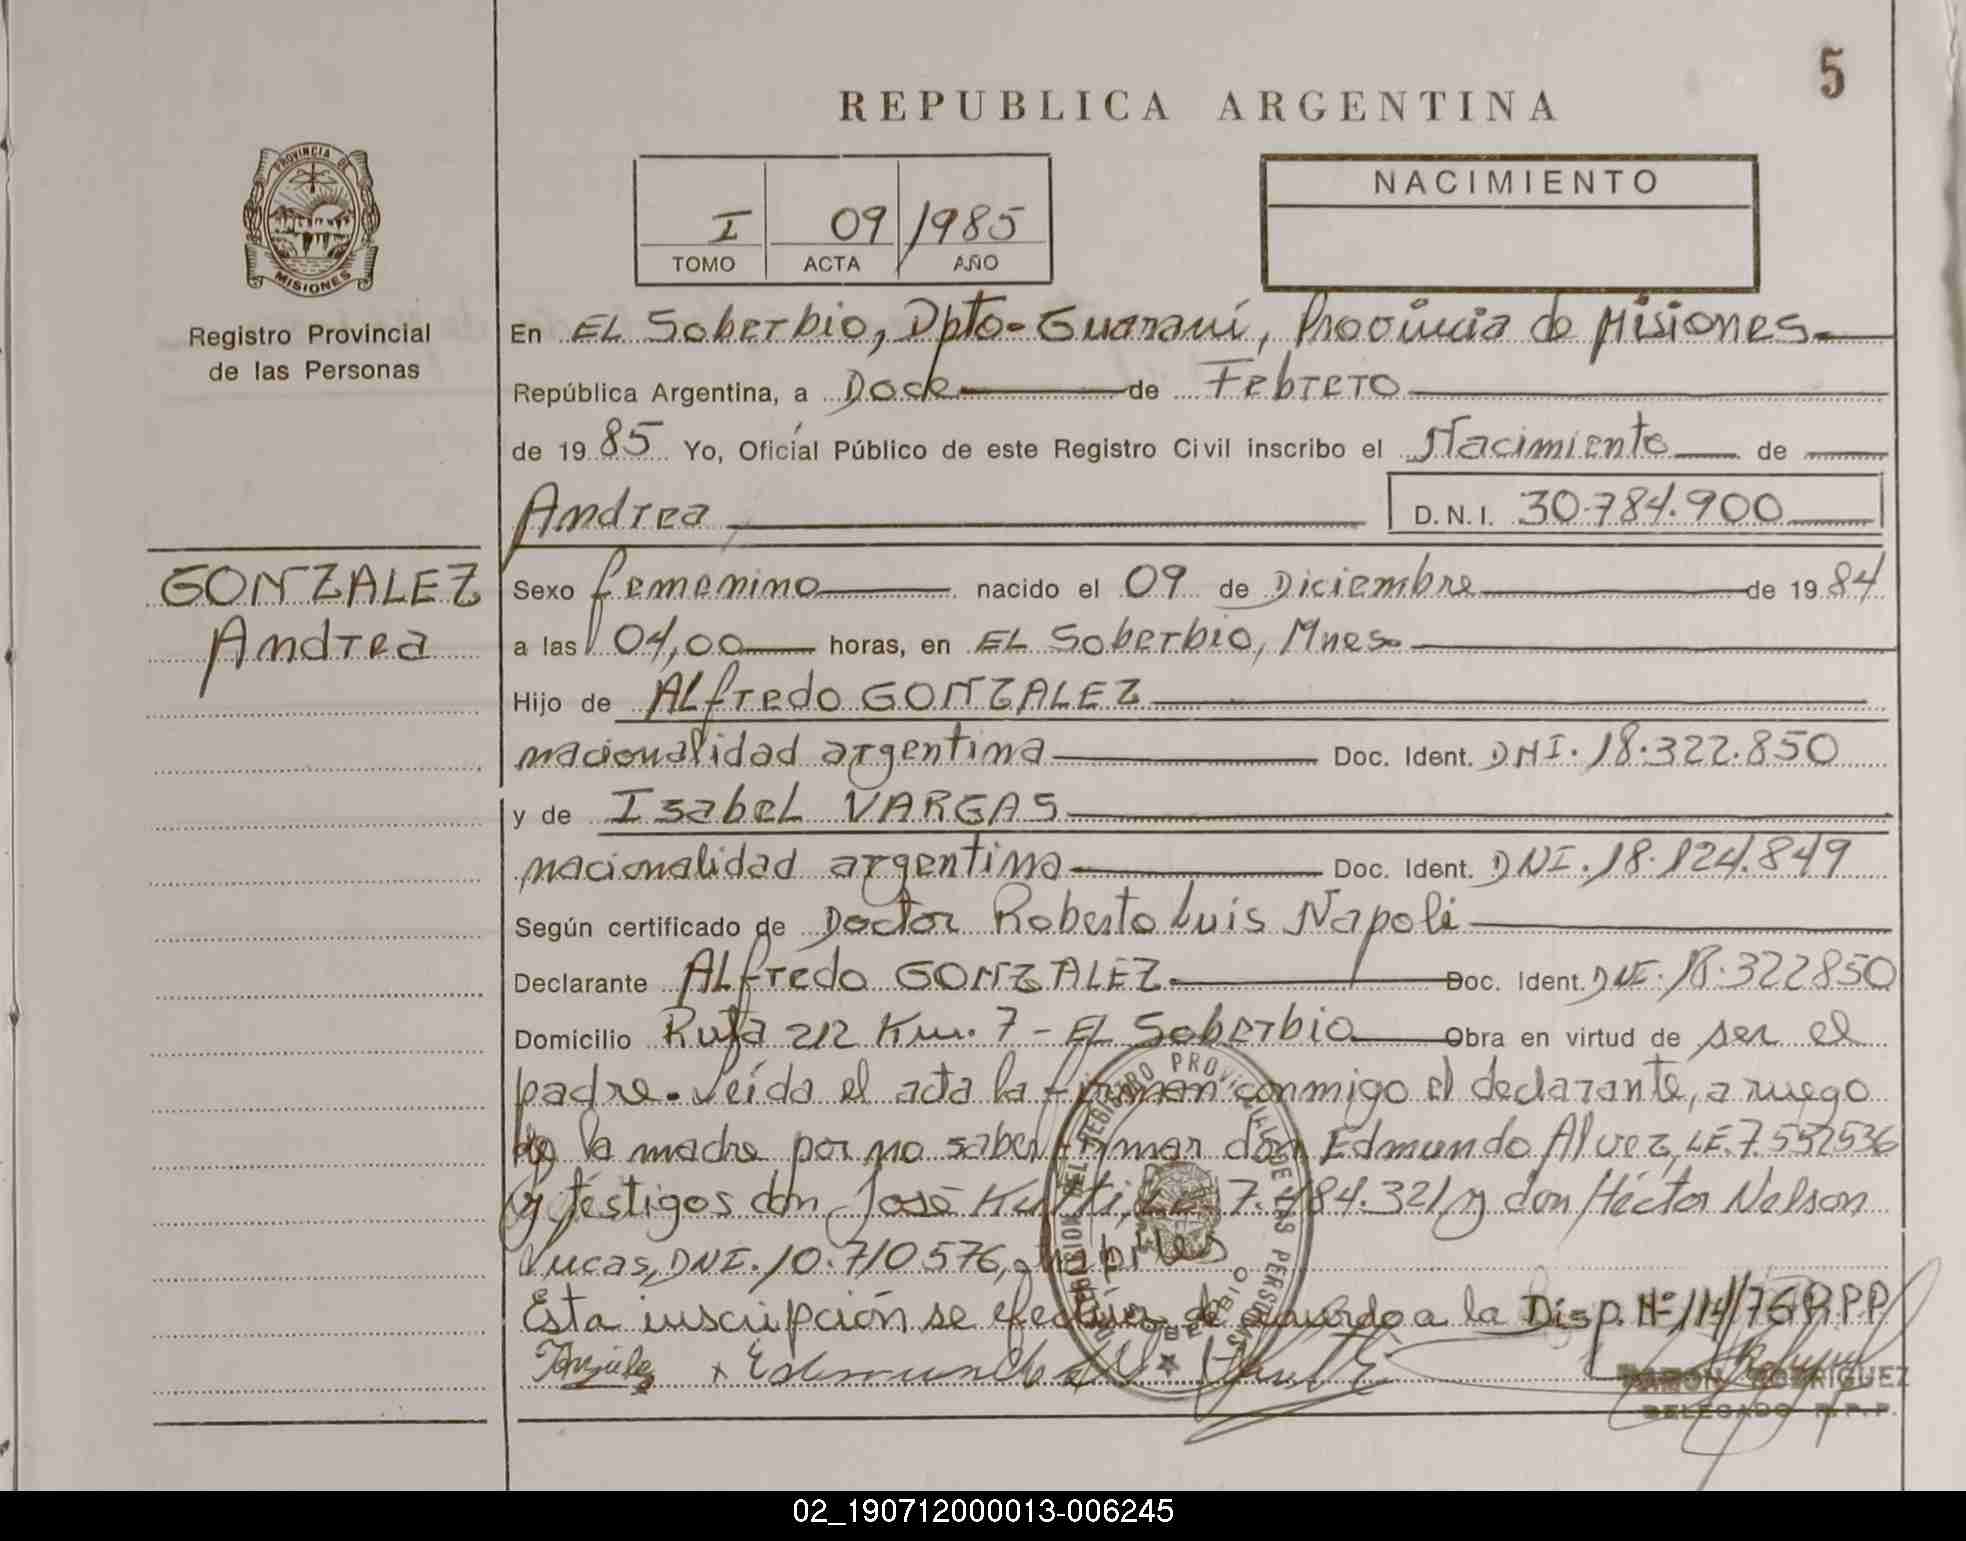 5
REPUBLICA ARGENTINA
PROVINCIA DE
MISIONES
Registro Provincial
de las Personas
I 09 1985
TOMO ACTA AÑO
NACIMIENTO
En EL Soberbio, Dpto- Guaraní, Provincia de Misiones
República Argentina, a Doce de Febrero
de 1985 Yo, Oficial Público de este Registro Civil inscribo el Nacimiento de
Andrea D.N.I. 30.784.900
GONZALEZ
Andrea
Sexo femenino nacido el 09 de Diciembre de 1984
a las 04,00 horas, en EL Soberbio, Mnes.
Hijo de ALfredo GONZALEZ
nacionalidad argentina Doc. Ident. DNI. 18.322.850
y de Isabel VARGAS
nacionalidad argentina Doc. Ident. DNI. 18.124.849
Según certificado de Doctor Roberto Luis Napoli
Declarante ALfredo GONZALEZ Doc. Ident. DNI. 18.322850
Domicilio Ruta 212 Km. 7 - EL Soberbio Obra en virtud de ser el
padre. Leída el acta la firman conmigo el declarante, a ruego
de la madre por no saber firmar don Edmundo Alvez, LE. 7.532536
y testigos don José 7.484.321 y don Héctor Nelson
DNI. 10.710576,
Esta inscripción se efectúa de acuerdo a la Disp. Nº 114/76 R.P.P.
RAMON RODRIGUEZ
DELEGADO R.P.P.
02_190712000013-006245